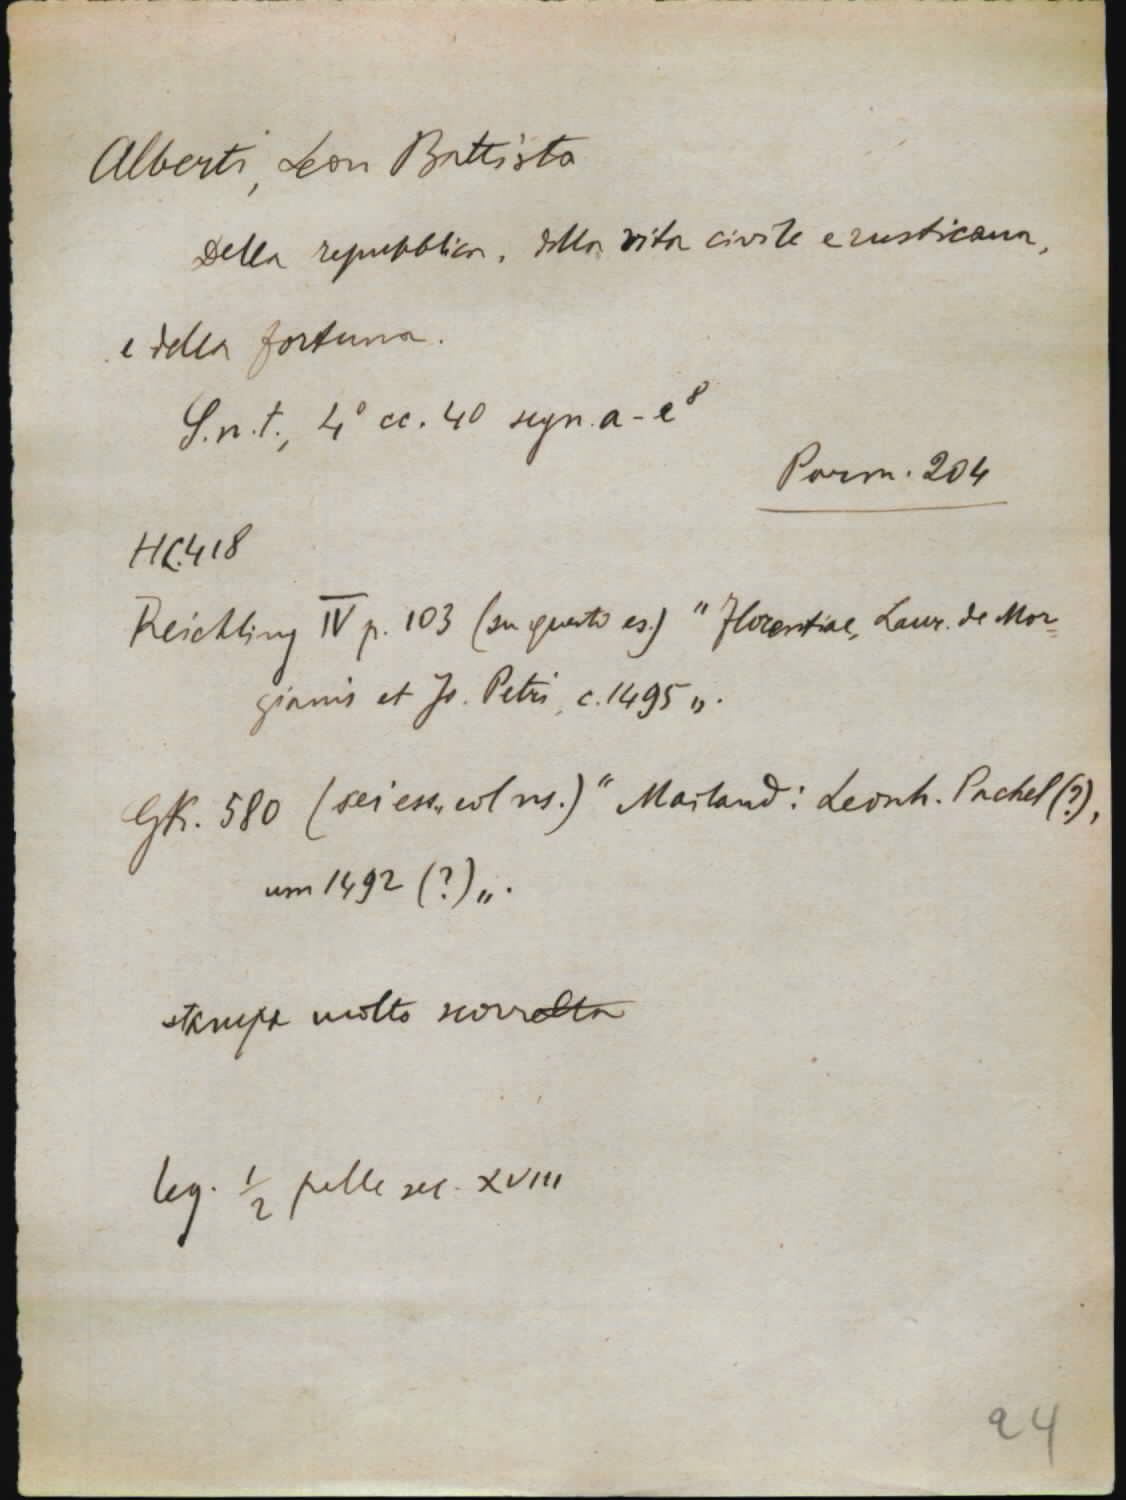 Alberti, Leon Battista
Della repubblica, della vita civile e rusticana,
e della fortuna.
S.n.t., 4° cc. 40 segn. a-e⁸
Parm. 204
HC.418
Reichling IV p. 103 (su questo es.) "Florentiae, Laur. de Mor=
gianis et Jo. Petri, c. 1495„.
GK. 580 (sei ess., col ns.) "Mailand: Leonh. Pachel (?),
um 1492 (?)„.
stampa molto scorretta
leg. ½ pelle sec. XVIII
24